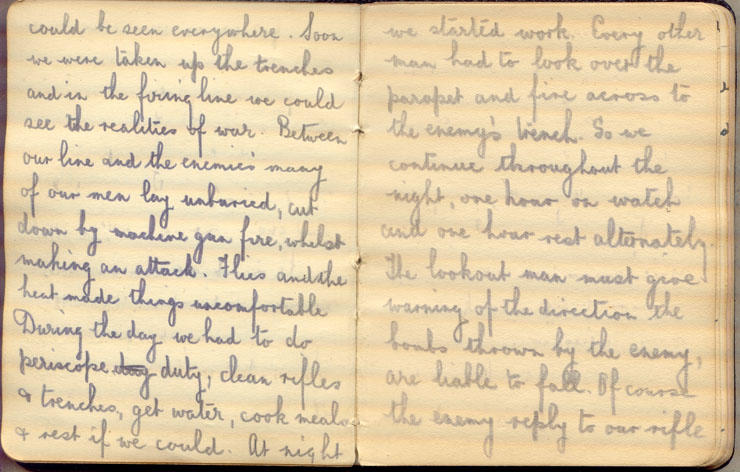 could be seen everywhere. Soon
we were taken up the trenches
and in the firing line we could
see the realities of war. Between
our line and the enemies many
of our men lay unburied, cut
down by machine gun fire, whilst
making an attack. Flies and the
heat made things uncomfortable
During the day we had to do
periscope day duty, clean rifles
& trenches, get water, cook meals
& rest if we could. At night
we started work. Every other
man had to look over the
parapet and fire across to
the enemy's trench. So we
continue throughout the
night, one hour on watch
and one hour rest alternately.
The lookout man must give
warning of the direction the
bombs thrown by the enemy,
are liable to fall. Of course
the enemy reply to our rifle